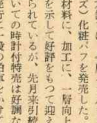 ズ化粧パフを発売した。
材料に、加工に、一層向上
を示して好評をもつて迎
られているが、先月来引続
いての時計付特売は好調